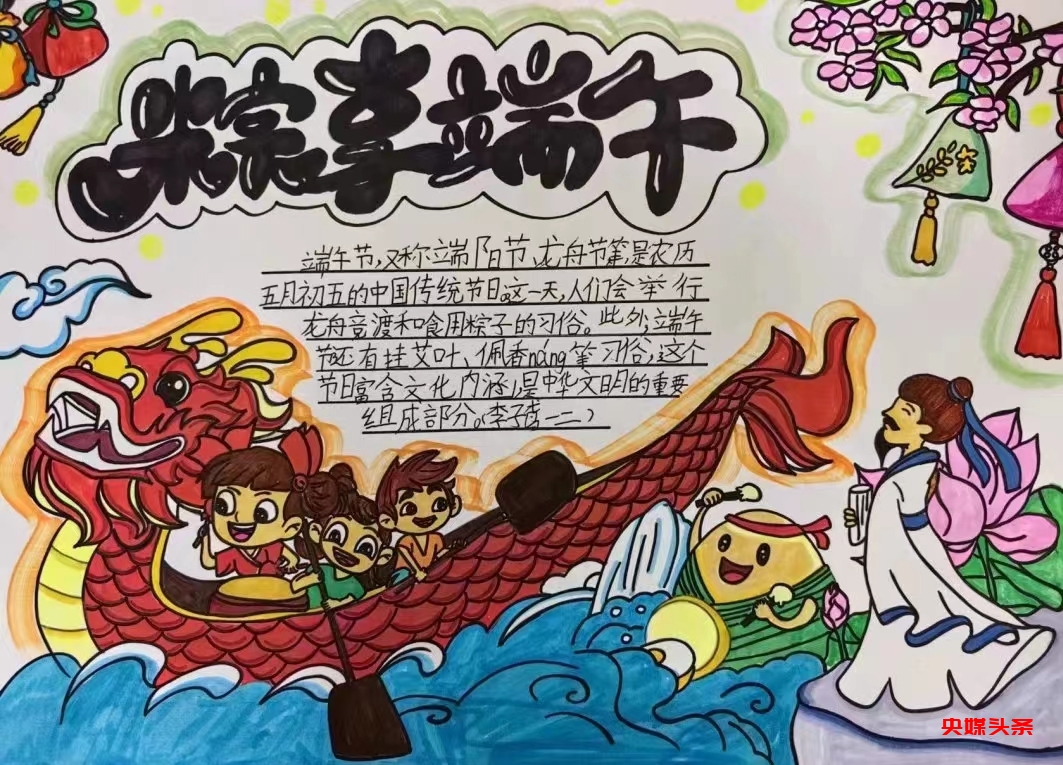 粽享端午
端午节,又称端阳节、龙舟节等,是农历
五月初五的中国传统节日。这一天,人们会举行
龙舟竞渡和食用粽子的习俗。此外,端午
节还有挂艾叶、佩香náng等习俗,这个
节日富含文化内涵,是中华文明的重要
组成部分。(李子 一二)
央媒头条